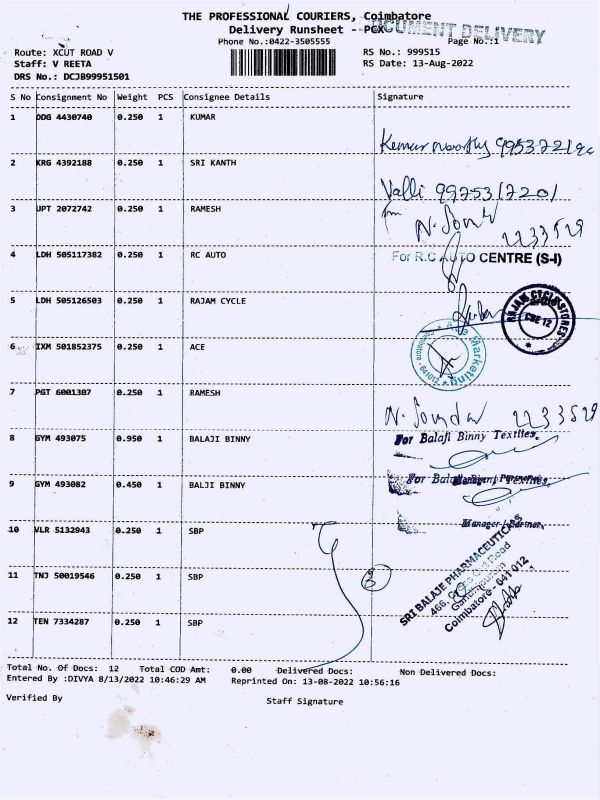 THE PROFESSIONAL COURIERS, Coimbatore
Delivery Runsheet - PCX
DOCUMENT DELIVERY
Phone No.:0422-3505555
Page No.:1
Route: XCUT ROAD V
RS No.: 999515
Staff: V REETA
RS Date: 13-Aug-2022
DRS No.: DCJB99951501
S No Consignment No Weight PCS Consignee Details Signature
1 ODG 4430740 0.250 1 KUMAR
2 KRG 4392188 0.250 1 SRI KANTH
Valli
3 JPT 2072742 0.250 1 RAMESH
2233529
4 LDH 505117382 0.250 1 RC AUTO For R.C AUTO CENTRE (S-I)
5 LDH 505126503 0.250 1 RAJAM CYCLE
RAJAM CYCLE STORES
CBE 12
6 IXM 501852375 0.250 1 ACE
Ace Marketing
Coimbatore - 641012
7 PGT 6001307 0.250 1 RAMESH
2233529
8 GYM 493075 0.950 1 BALAJI BINNY For Balaji Binny Textiles.
9 GYM 493082 0.450 1 BALJI BINNY For Balaji Binny Textiles.
Manager/Partner
10 VLR 5132943 0.250 1 SBP
SRI BALAJE PHARMACEUTICALS
466, Cross Cut Road
Gandhipuram
Coimbatore - 641 012
11 TNJ 50019546 0.250 1 SBP 3
12 TEN 7334287 0.250 1 SBP
Total No. Of Docs: 12 Total COD Amt: 0.00 Delivered Docs: Non Delivered Docs:
Entered By :DIVYA 8/13/2022 10:46:29 AM Reprinted On: 13-08-2022 10:56:16
Verified By
Staff Signature